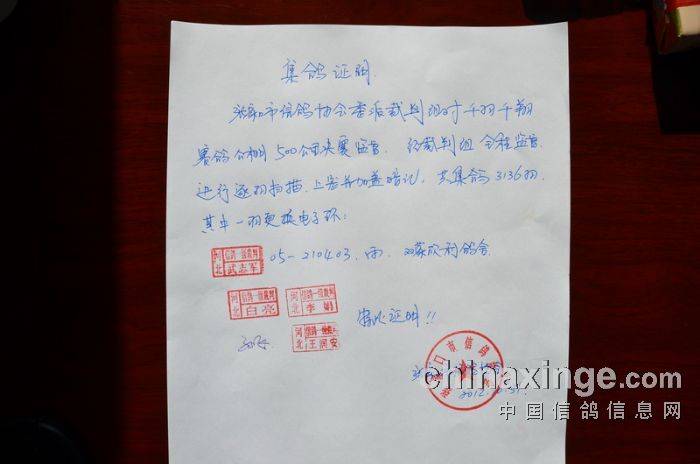 集鸽证明
张家口市信鸽协会委派裁判组对千羽千翔
赛鸽公棚500公里决赛监督. 经裁判组全程监督
进行逐羽扫描.上客并加盖暗记,共集鸽3136羽.
其中一羽更换电子环:
河北 信鸽一级裁判 武志军 05-210403. 雨.
河北 信鸽一级裁判 白亮 河北 信鸽一级裁判 李娟
特此证明!!
河北 信鸽一级裁判 王润安
张家口市信鸽协会
2012.10.31.
chinaxinge.com
中国信鸽信息网